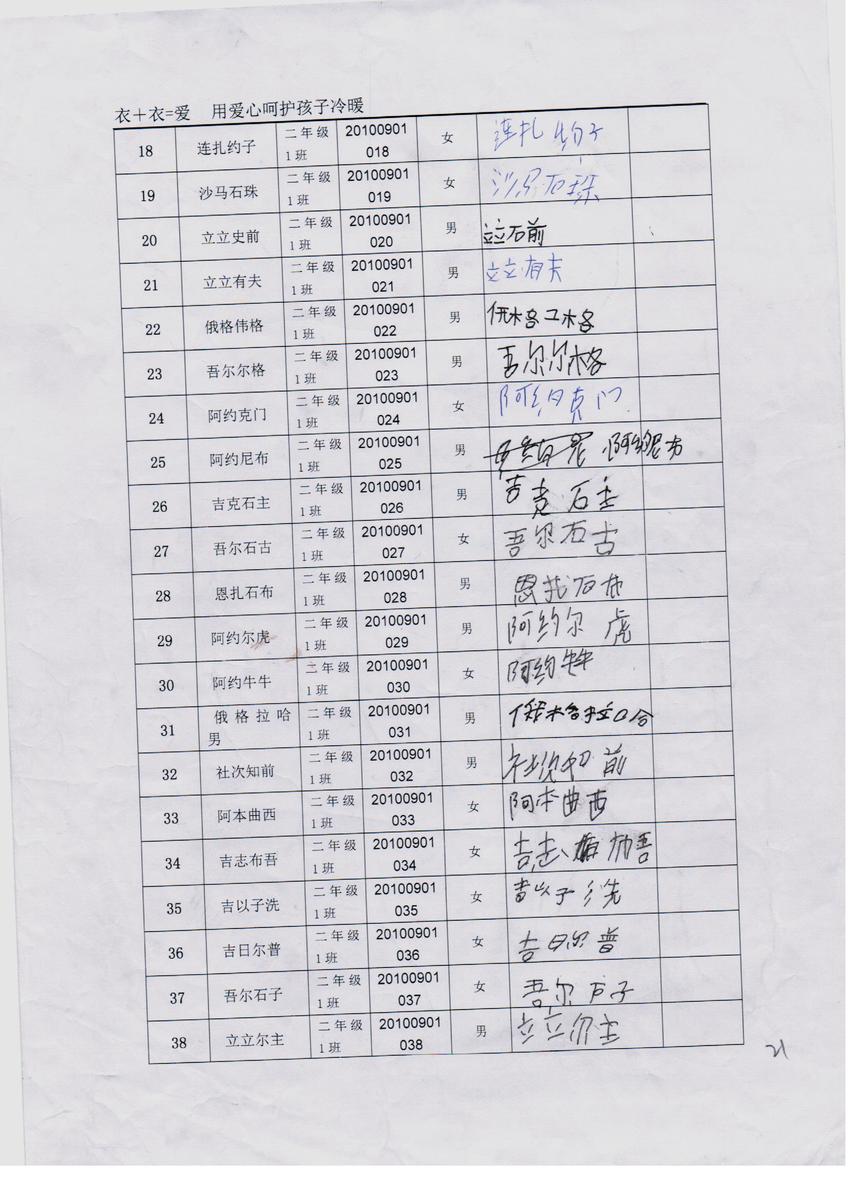 衣＋衣=爱 用爱心呵护孩子冷暖
18 连扎约子 二年级1班 20100901018 女 连扎约子
19 沙马石珠 二年级1班 20100901019 女 沙马石珠
20 立立史前 二年级1班 20100901020 男 立立石前
21 立立有夫 二年级1班 20100901021 男 立立有夫
22 俄格伟格 二年级1班 20100901022 男
23 吾尔尔格 二年级1班 20100901023 男 吾尔尔格
24 阿约克门 二年级1班 20100901024 女 阿约克门
25 阿约尼布 二年级1班 20100901025 男 阿约尼布
26 吉克石主 二年级1班 20100901026 男 吉克石主
27 吾尔石古 二年级1班 20100901027 女 吾尔石古
28 恩扎石布 二年级1班 20100901028 男 恩扎石布
29 阿约尔虎 二年级1班 20100901029 男 阿约尔虎
30 阿约牛牛 二年级1班 20100901030 女 阿约牛牛
31 俄格拉哈男 二年级1班 20100901031 男 俄格拉哈
32 社次知前 二年级1班 20100901032 男 社次知前
33 阿本曲西 二年级1班 20100901033 女 阿本曲西
34 吉志布吾 二年级1班 20100901034 女
35 吉以子洗 二年级1班 20100901035 女 吉以子洗
36 吉日尔普 二年级1班 20100901036 女 吉日尔普
37 吾尔石子 二年级1班 20100901037 女 吾尔石子
38 立立尔主 二年级1班 20100901038 男 立立尔主
21